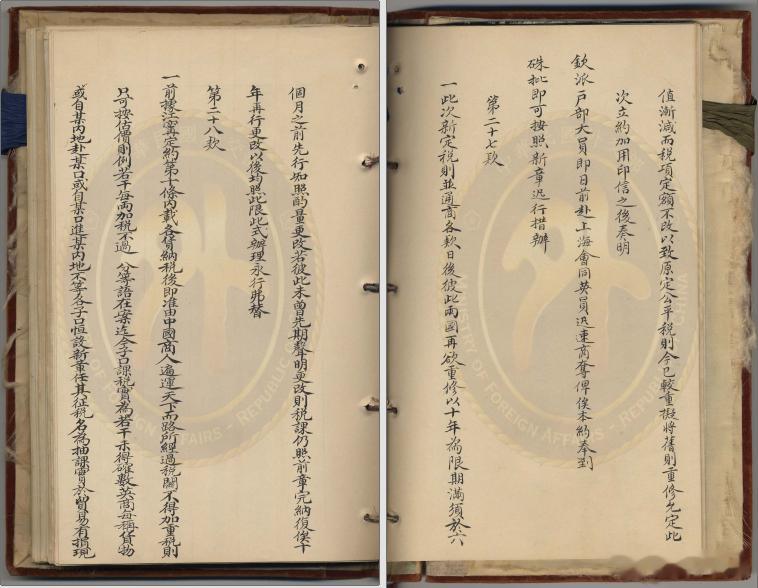 值漸減而税項定額不改以致原定公平税則今已較重擬將舊則重修允定此
次立約加用印信之後奏明
欽派戶部大員即日前赴上海會同英員迅速商奪俾俟本約奉到
硃批即可按照新章迅行措辦
第二十七款
一此次新定税則並通商各款日後彼此兩國再欲重修以十年為限期滿須於六
個月之前先行知照酌量更改若彼此未曾先期聲明更改則税課仍照前章完納復俟十
年再行更改以後均照此限此式辦理永行弗替
第二十八款
一前據江寧定約第十條內載各貨納税後即准由中國商人遍運天下而路所經過税關不得加重税則
只可按估價則例若干每兩加税不過 分等語在案迄今子口課税實為若干未得確數英商每稱貨物
或自某內地赴某口或自某口進某內地不等各子口恒設新章任其征税名為抽課實於貿易有損現
MINISTRY OF FOREIGN AFFAIRS
REPUBLIC OF